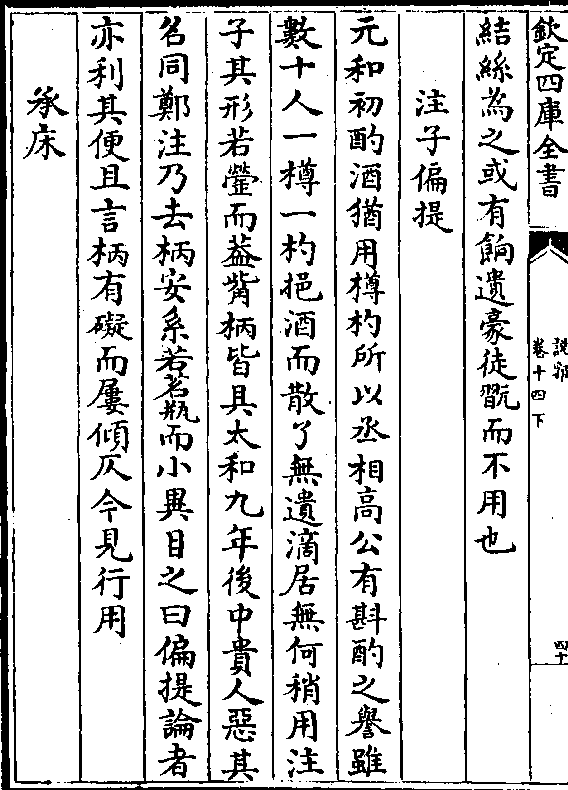 欽定四庫全書
說郛
卷十四下
四十
結絲為之或有餉遺豪徒翫而不用也
注子偏提
元和初酌酒猶用樽杓所以丞相高公有斟酌之譽雖
數十人一樽一杓挹酒而散了無遺滴居無何稍用注
子其形若罃而葢觜柄皆具太和九年後中貴人惡其
名同鄭注乃去柄安系若茗瓶而小異目之曰偏提論者
亦利其便且言柄有礙而屢傾仄今見行用
承床